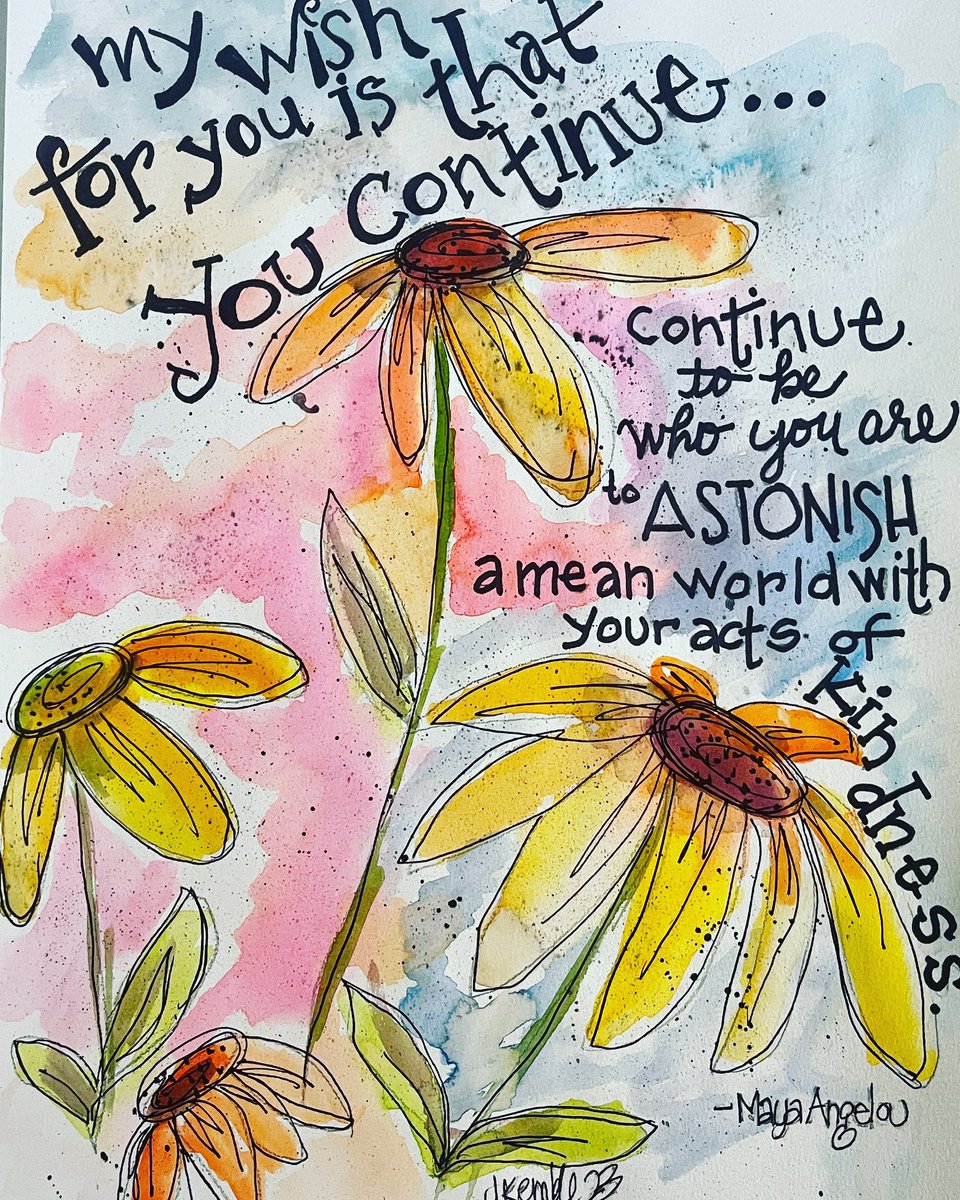 my wish
for you is that
you continue...
continue
to be
who you are
to ASTONISH
a mean world with
your acts of
kindness.
-Maya Angelou
JKemble 23